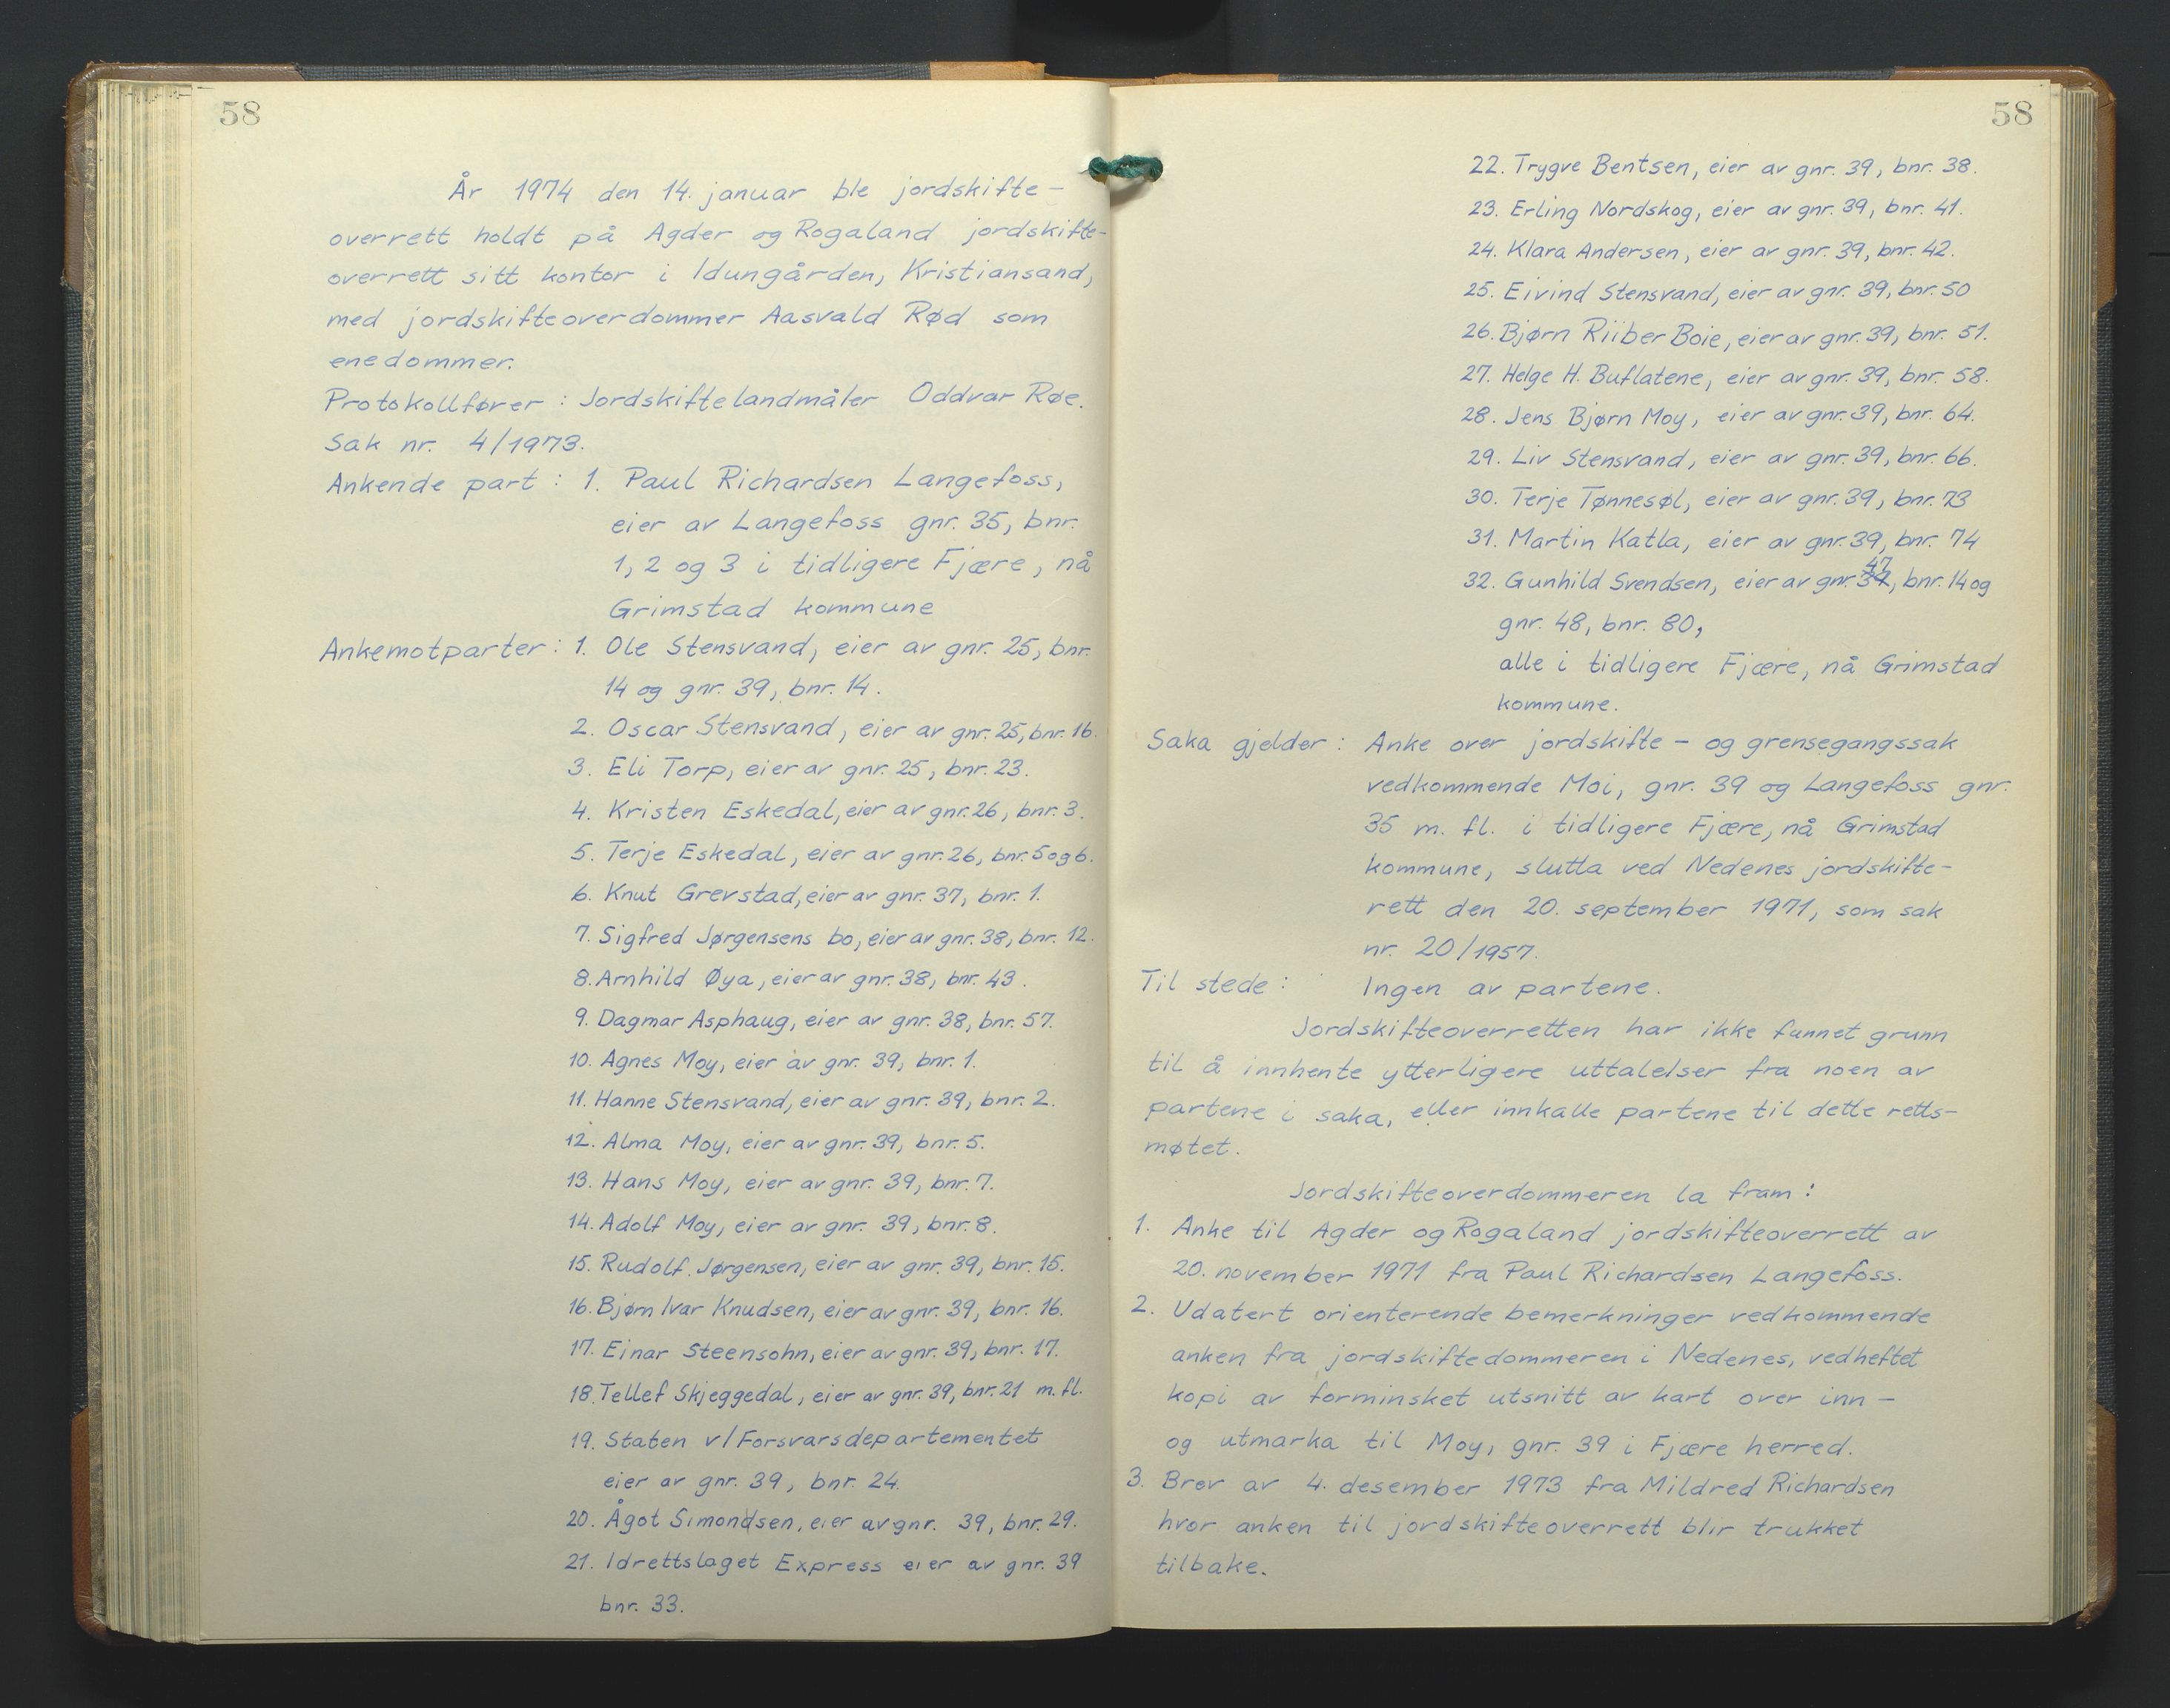 58
År 1974 den 14. januar ble jordskifte-
overrett holdt på Agder og Rogaland jordskifte-
overrett sitt kontor i Idungården, Kristiansand,
med jordskifteoverdommer Aasvald Rød som
enedommer.
Protokollfører : Jordskiftelandmåler Oddvar Røe.
Sak nr. 4/1973.
Ankende part : 1. Paul Richardsen Langefoss,
eier av Langefoss gnr. 35, bnr.
1, 2 og 3 i tidligere Fjære, nå
Grimstad kommune
Ankemotparter : 1. Ole Stensvand, eier av gnr. 25, bnr.
14 og gnr. 39, bnr. 14.
2. Oscar Stensvand, eier av gnr. 25, bnr. 16.
3. Eli Torp, eier av gnr. 25, bnr. 23.
4. Kristen Eskedal, eier av gnr. 26, bnr. 3.
5. Terje Eskedal, eier av gnr. 26, bnr. 5 og 6.
6. Knut Grevstad, eier av gnr. 37, bnr. 1.
7. Sigfred Jørgensens bo, eier av gnr. 38, bnr. 12.
8. Arnhild Øya, eier av gnr. 38, bnr. 43.
9. Dagmar Asphaug, eier av gnr. 38, bnr. 57.
10. Agnes Moy, eier av gnr. 39, bnr. 1.
11. Hanne Stensvand, eier av gnr. 39, bnr. 2.
12. Alma Moy, eier av gnr. 39, bnr. 5.
13. Hans Moy, eier av gnr. 39, bnr. 7.
14. Adolf Moy, eier av gnr. 39, bnr. 8.
15. Rudolf Jørgensen, eier av gnr. 39, bnr. 15.
16. Bjørn Ivar Knudsen, eier av gnr. 39, bnr. 16.
17. Einar Steensohn, eier av gnr. 39, bnr. 17.
18. Tellef Skjeggedal, eier av gnr. 39, bnr. 21 m.fl.
19. Staten v/Forsvarsdepartementet
eier av gnr. 39, bnr. 24.
20. Ågot Simondsen, eier av gnr. 39, bnr. 29.
21. Idrettslaget Express eier av gnr. 39
bnr. 33.
58
22. Trygve Bentsen, eier av gnr. 39, bnr. 38.
23. Erling Nordskog, eier av gnr. 39, bnr. 41.
24. Klara Andersen, eier av gnr. 39, bnr. 42.
25. Eivind Stensvand, eier av gnr. 39, bnr. 50
26. Bjørn Riiber Boie, eier av gnr. 39, bnr. 51.
27. Helge H. Buflatene, eier av gnr. 39, bnr. 58.
28. Jens Bjørn Moy, eier av gnr. 39, bnr. 64.
29. Liv Stensvand, eier av gnr. 39, bnr. 66.
30. Terje Tønnesøl, eier av gnr. 39, bnr. 73
31. Martin Katla, eier av gnr. 39, bnr. 74
47
32. Gunhild Svendsen, eier av gnr. 39, bnr. 14 og
gnr. 48, bnr. 80,
alle i tidligere Fjære, nå Grimstad
kommune.
Saka gjelder : Anke over jordskifte - og grensegangssak
vedkommende Moi, gnr. 39 og Langefoss gnr.
35 m. fl. i tidligere Fjære, nå Grimstad
kommune, slutta ved Nedenes jordskifte-
rett den 20. september 1971, som sak
nr. 20/1957.
Til stede : Ingen av partene.
Jordskifteoverretten har ikke funnet grunn
til å innhente ytterligere uttalelser fra noen av
partene i saka, eller innkalle partene til dette retts-
møtet.
Jordskifteoverdommeren la fram :
1. Anke til Agder og Rogaland jordskifteoverrett av
20. november 1971 fra Paul Richardsen Langefoss.
2. Udatert orienterende bemerkninger vedkommende
anken fra jordskiftedommeren i Nedenes, vedheftet
kopi av forminsket utsnitt av kart over inn -
og utmarka til Moy, gnr. 39 i Fjære herred.
3. Brev av 4. desember 1973 fra Mildred Richardsen
hvor anken til jordskifteoverrett blir trukket
tilbake.